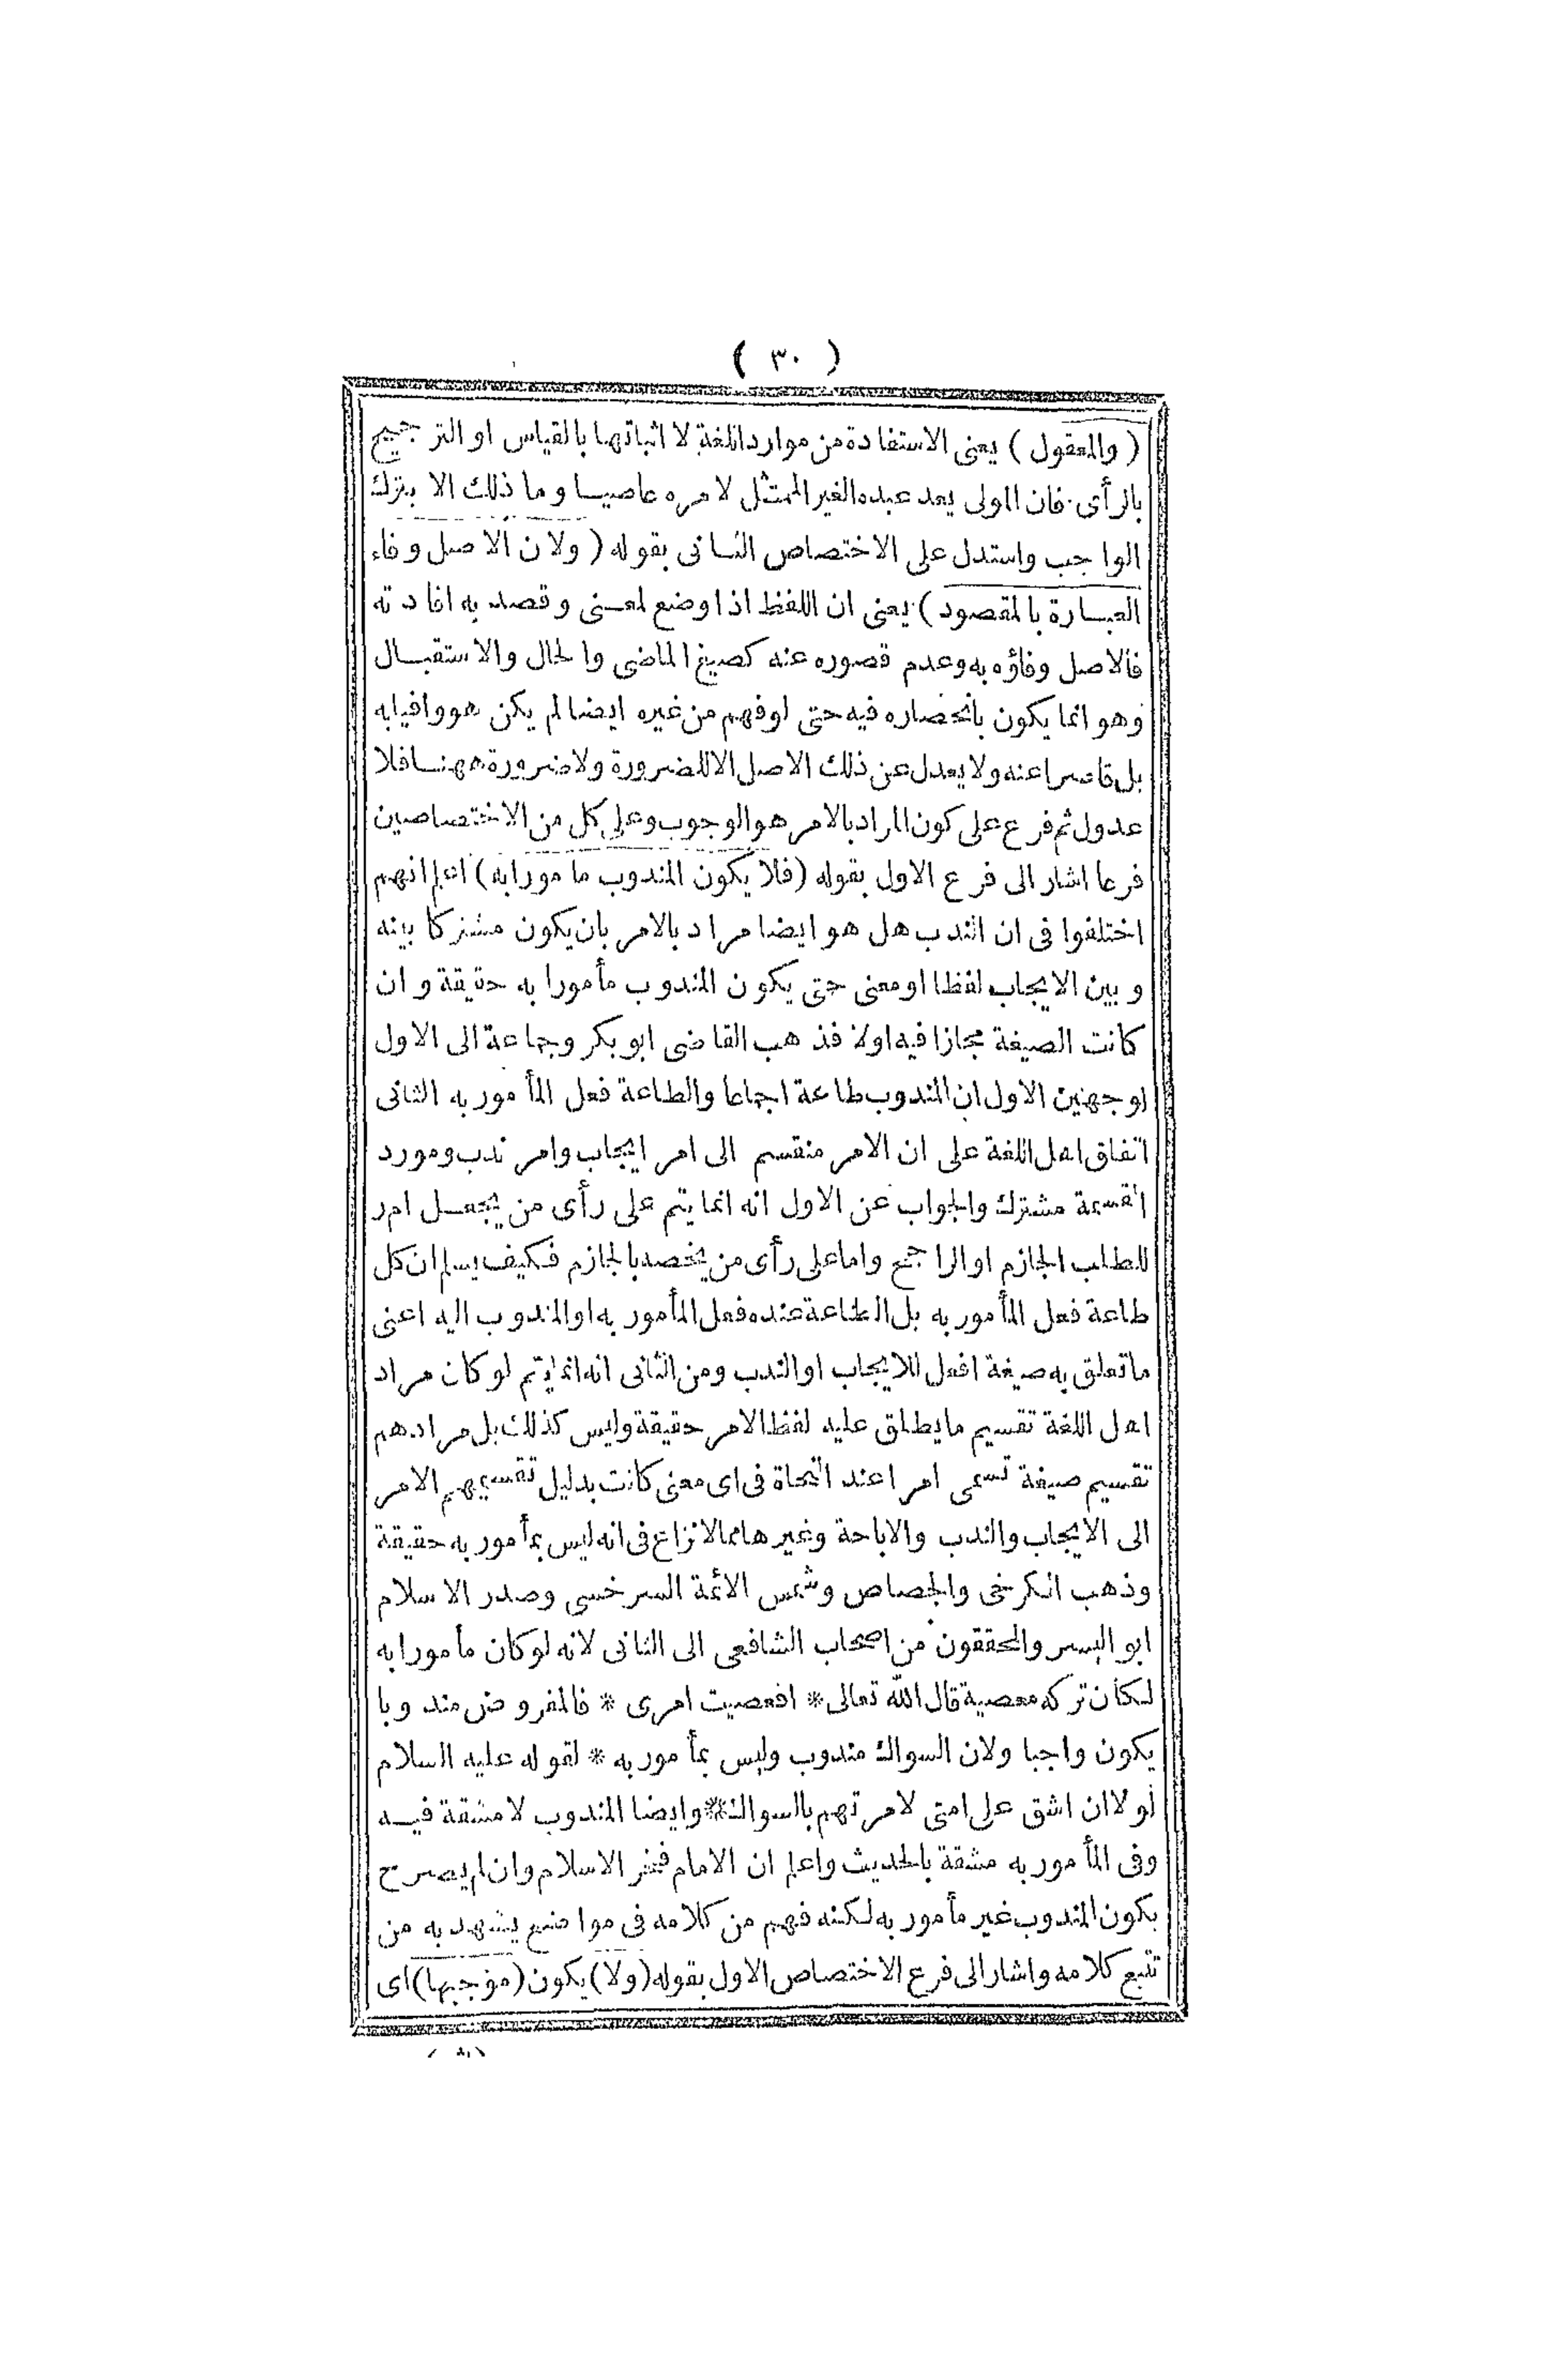 ( ٣٠ )
( والمعقول ) يعنى الاستفادة من موارد اللغة لا اثباتها بالقياس او الترجيح
بالرأى فان المولى يعد عبده الغير الممتثل لامره عاصيا وما ذلك الا بترك
الواجب واستدل على الاختصاص الثانى بقوله ( ولان الاصل وفاء
العبارة بالمقصود ) يعنى ان اللفظ اذا وضع لمعنى وقصد به افادته
فالاصل وفاؤه به وعدم قصوره عنه كصيغ الماضى والحال والاستقبال
وهو انما يكون بانحصاره فيه حتى لو فهم من غيره ايضا لم يكن هو وافيا به
بل قاصرا عنه ولا يعدل عن ذلك الاصل الا للضرورة ولا ضرورة ههنا فلا
عدول ثم فرع على كون المراد بالامر هو الوجوب وعلى كل من الاختصاصين
فرعا اشار الى فرع الاول بقوله (فلا يكون المندوب مامورا به) اعلم انهم
اختلفوا فى ان الندب هل هو ايضا مراد بالامر بان يكون مشتركا بينه
وبين الايجاب لفظا او معنى حتى يكون المندوب مأمورا به حقيقة وان
كانت الصيغة مجازا فيه اولا فذهب القاضى ابو بكر وجماعة الى الاول
لوجهين الاول ان المندوب طاعة اجماعا والطاعة فعل المأمور به الثانى
اتفاق اهل اللغة على ان الامر منقسم الى امر ايجاب وامر ندب ومورد
القسمة مشترك والجواب عن الاول انه انما يتم على رأى من يجعل امر
للطلب الجازم او الراجح واما على رأى من يخصه بالجازم فكيف يسلم ان كل
طاعة فعل المأمور به بل الطاعة عنده فعل المأمور به او المندوب اليه اعنى
ما تعلق به صيغة افعل للايجاب او الندب ومن الثانى انه انما يتم لو كان مراد
اهل اللغة تقسيم ما يطلق عليه لفظ الامر حقيقة وليس كذلك بل مرادهم
تقسيم صيغة تسمى امرا عند النحاة فى اى معنى كانت بدليل تقسيمهم الامر
الى الايجاب والندب والاباحة وغيرها مما لا نزاع فى انه ليس بمأمور به حقيقة
وذهب الكرخى والجصاص وشمس الائمة السرخسى وصدر الاسلام
ابو اليسر والمحققون من اصحاب الشافعى الى الثانى لانه لو كان مأمورا به
لكان تركه معصية قال الله تعالى * افعصيت امرى * فالمفروض مندوبا
يكون واجبا ولان السواك مندوب وليس بمأمور به * لقوله عليه السلام
لولا ان اشق على امتى لامرتهم بالسواك * وايضا المندوب لا مشقة فيه
وفى المأمور به مشقة بالحديث واعلم ان الامام فخر الاسلام وان لم يصرح
بكون المندوب غير مأمور به لكنه فهم من كلامه فى مواضع يشهد به من
تتبع كلامه واشار الى فرع الاختصاص الاول بقوله (ولا) يكون (موجبها) اى